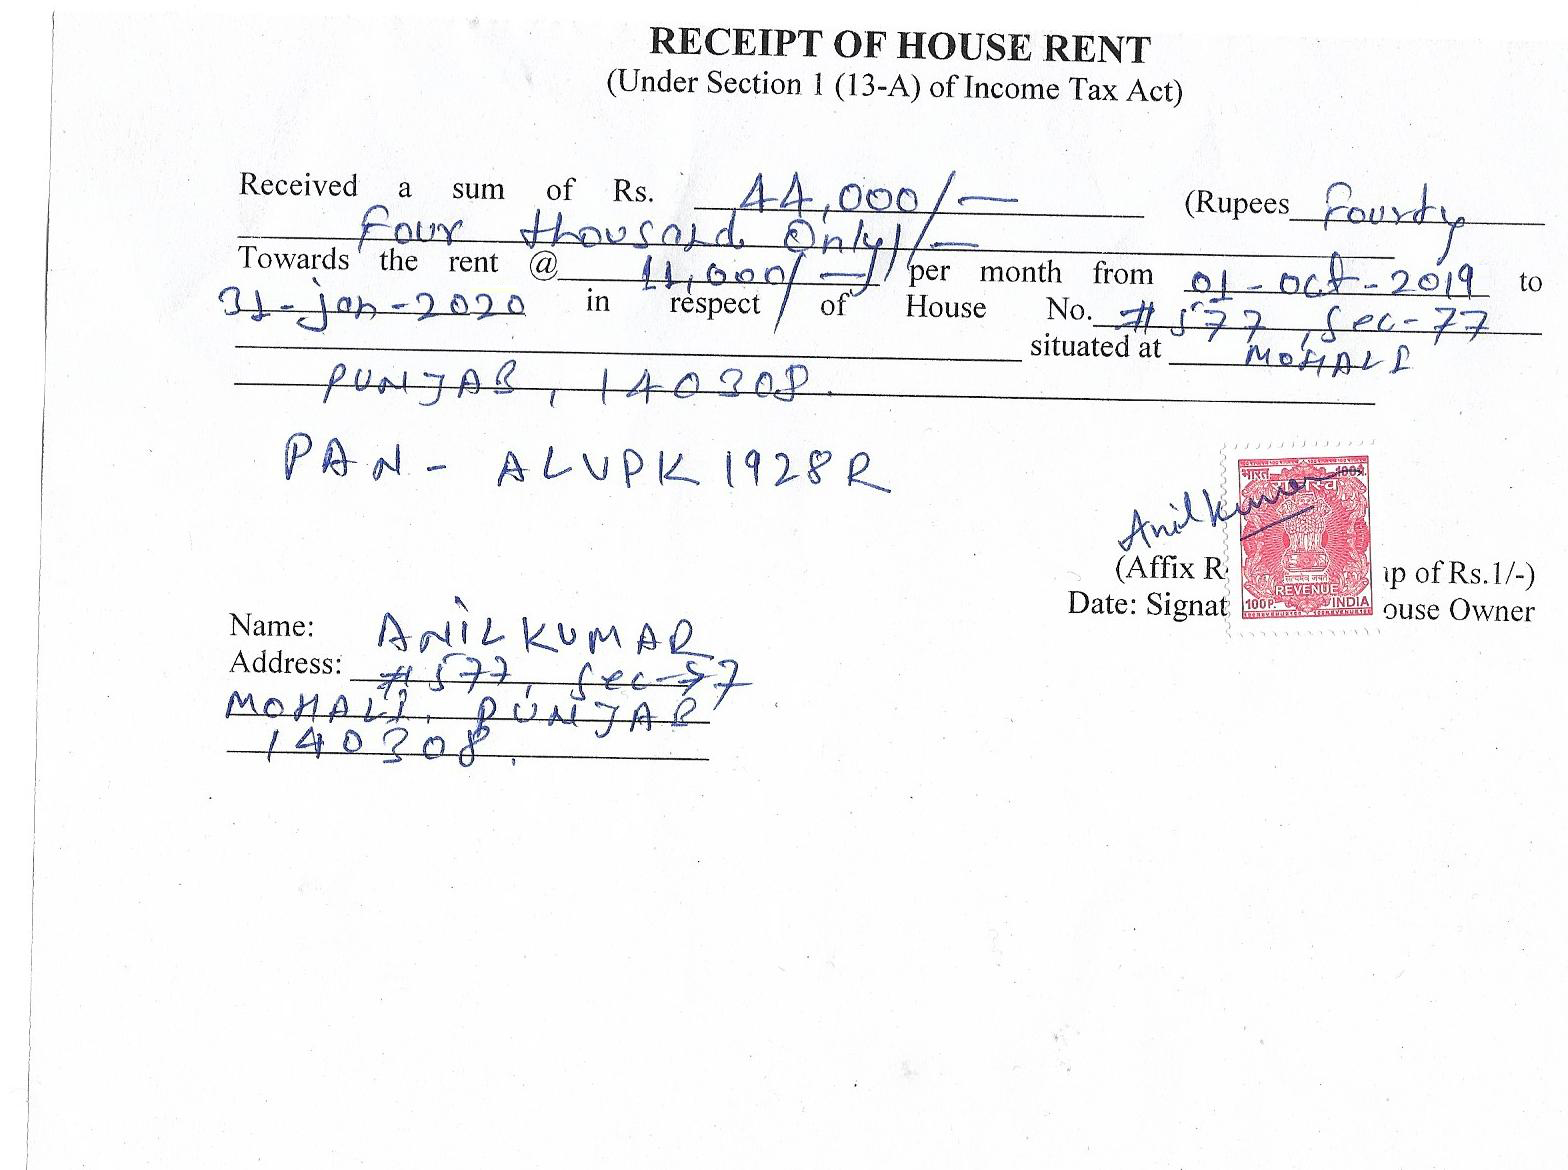 RECEIPT OF HOUSE RENT
(Under Section 1 (13-A) of Income Tax Act)
Received a sum of Rs. 44,000/- (Rupees Fourty
Four thousand Only)/-
Towards the rent @ 11,000/- per month from 01-oct-2019 to
31-jan-2020 in respect of House No. #577, Sec-77
situated at MOHALI
PUNJAB, 140308.
PAN - ALVPK1928R
भारत 100P.
Anil Kumar
सत्यमेव जयते
REVENUE
100P. INDIA
(Affix R ıp of Rs.1/-)
Date: Signat ouse Owner
Name: ANIL KUMAR
Address: #577, Sec-77
MOHALI, PUNJAB
140308.